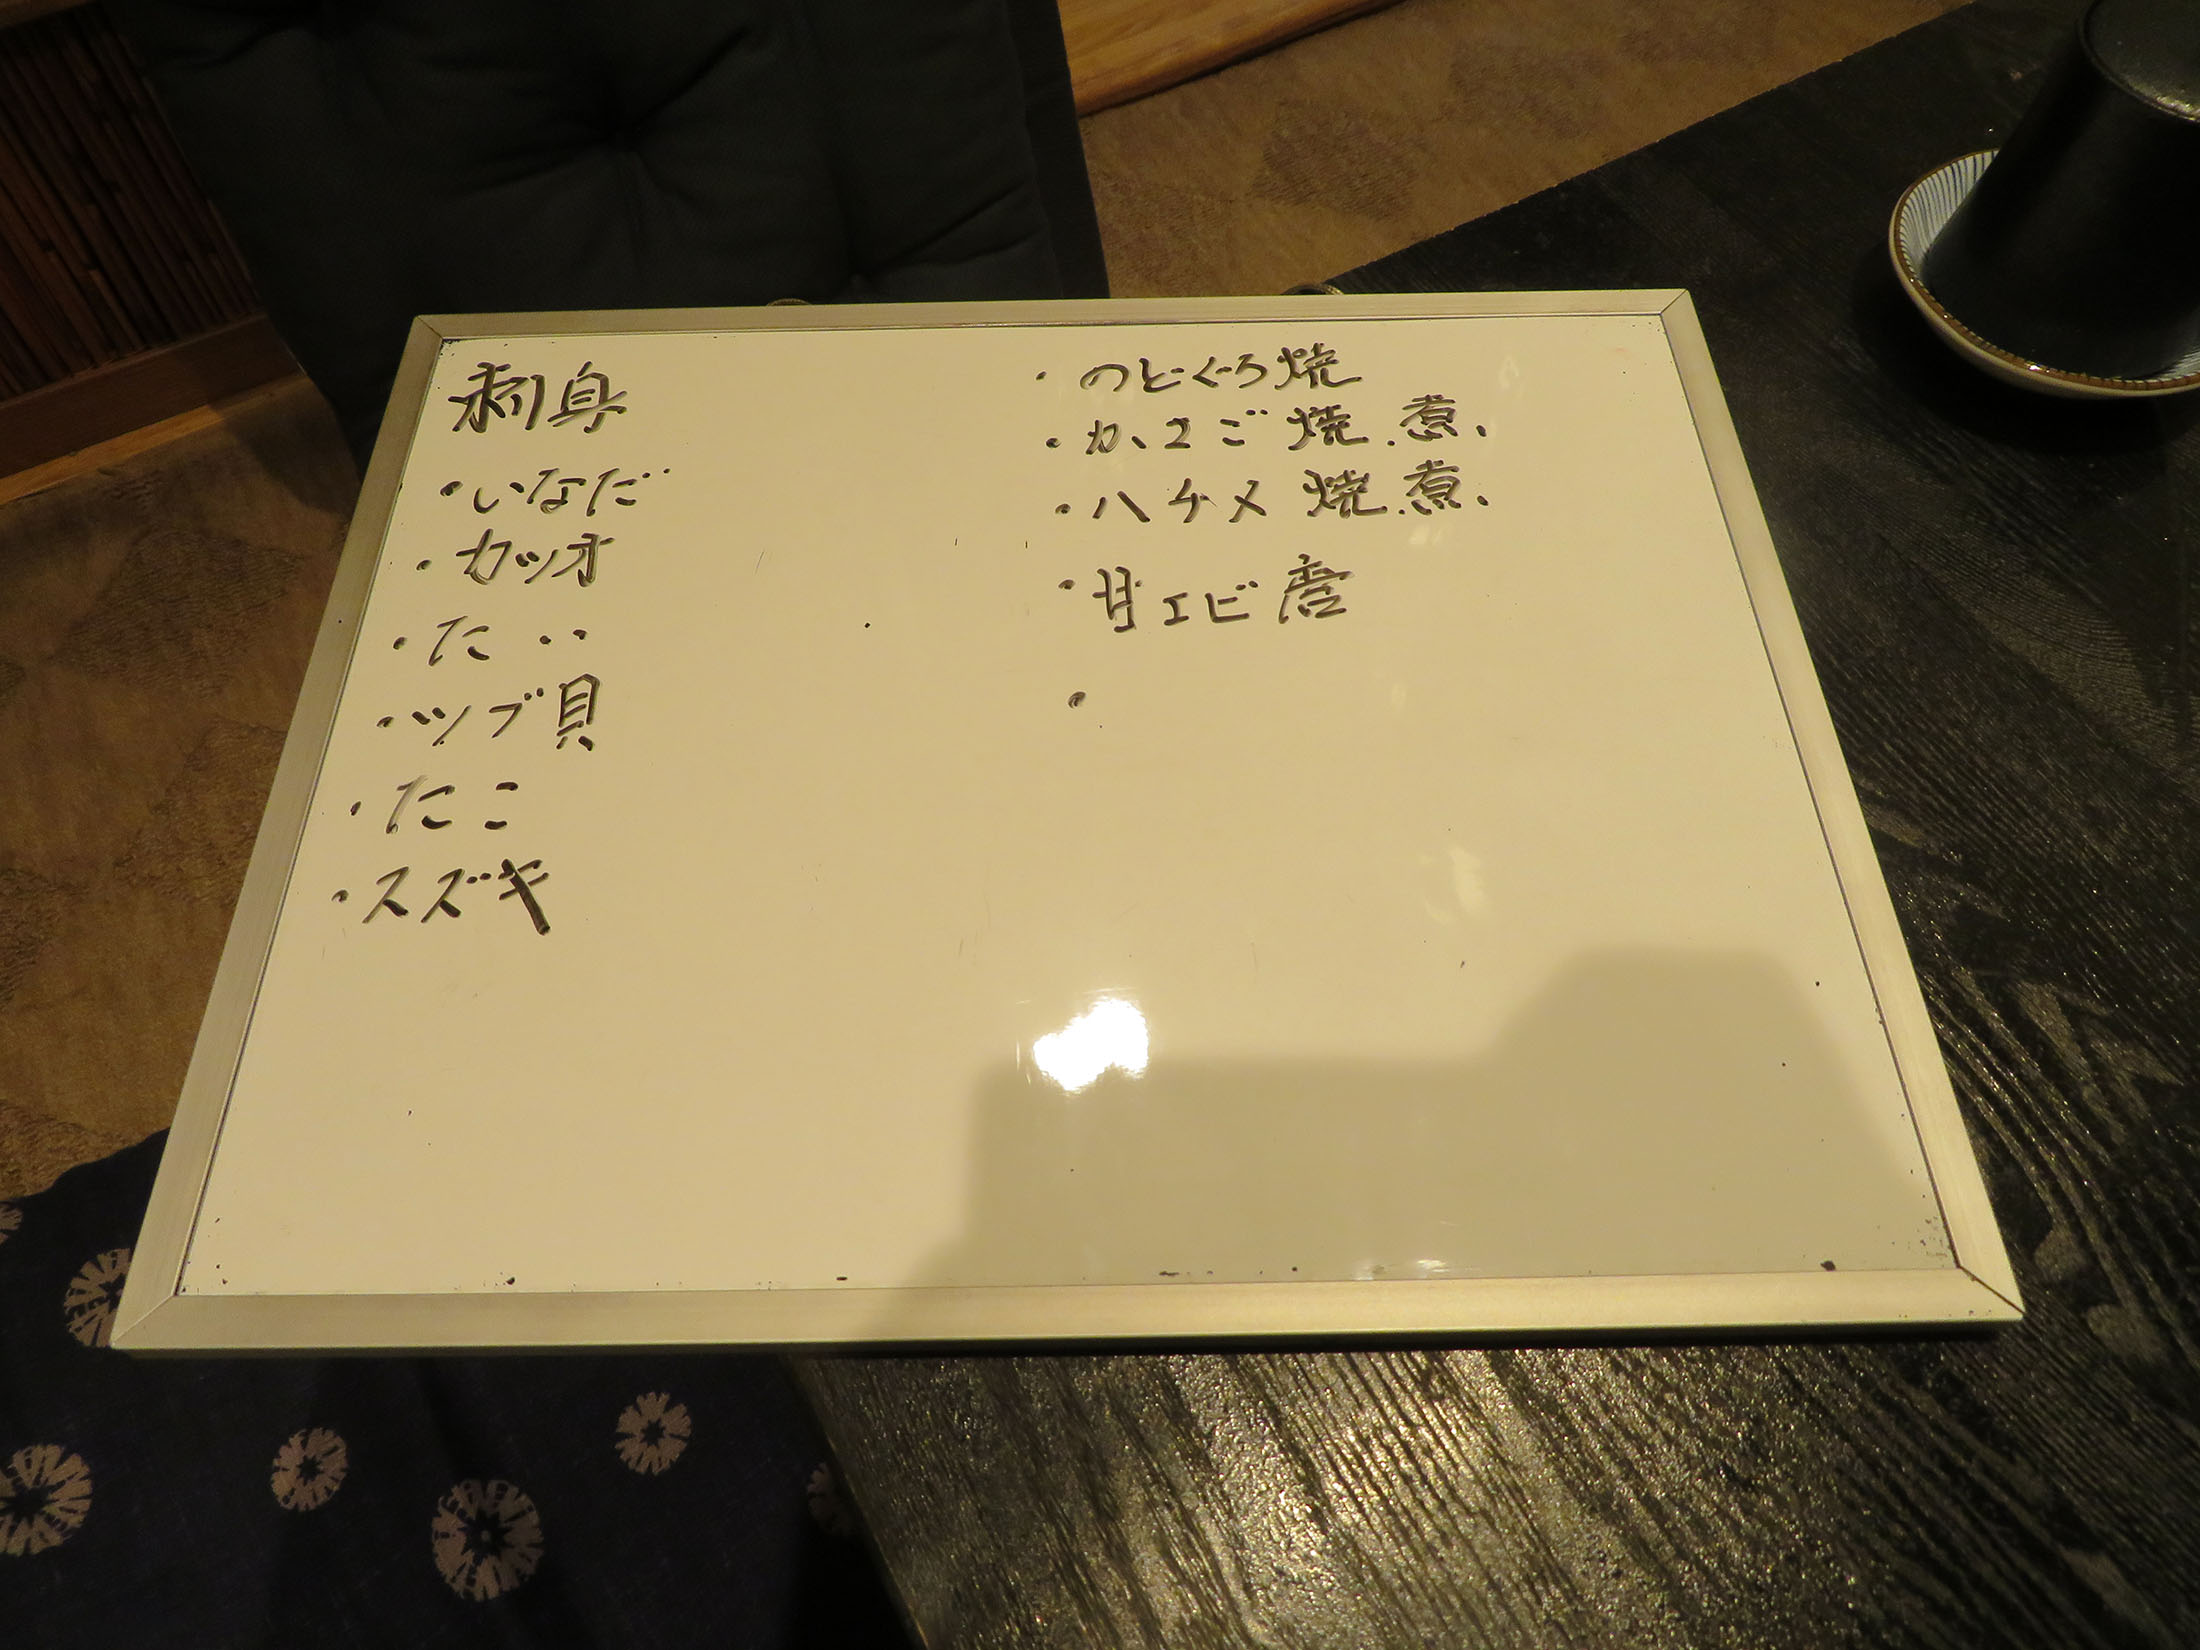 刺身
・いなだ
・カツオ
・たい
・ツブ貝
・たこ
・スズキ
・のどぐろ焼
・かさご 焼、煮、
・ハチメ 焼、煮、
・甘エビ
・